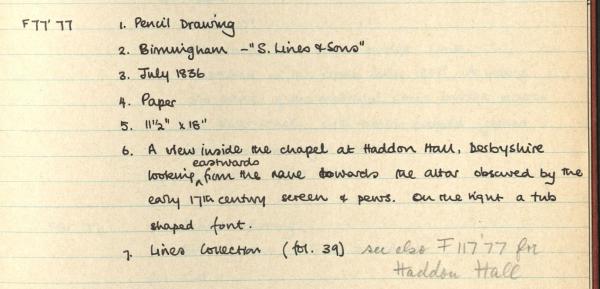 F77'77 1. Pencil Drawing
2. Birmingham - "S. Lines & Sons"
3. July 1836
4. Paper
5. 11½" x 18"
6. A view inside the chapel at Haddon Hall, Derbyshire
looking eastwards from the nave towards the altar obscured by the
early 17th century screen & pews. On the right a tub
shaped font.
7. Lines Collection (fol. 39) see also F117'77 for
Haddon Hall